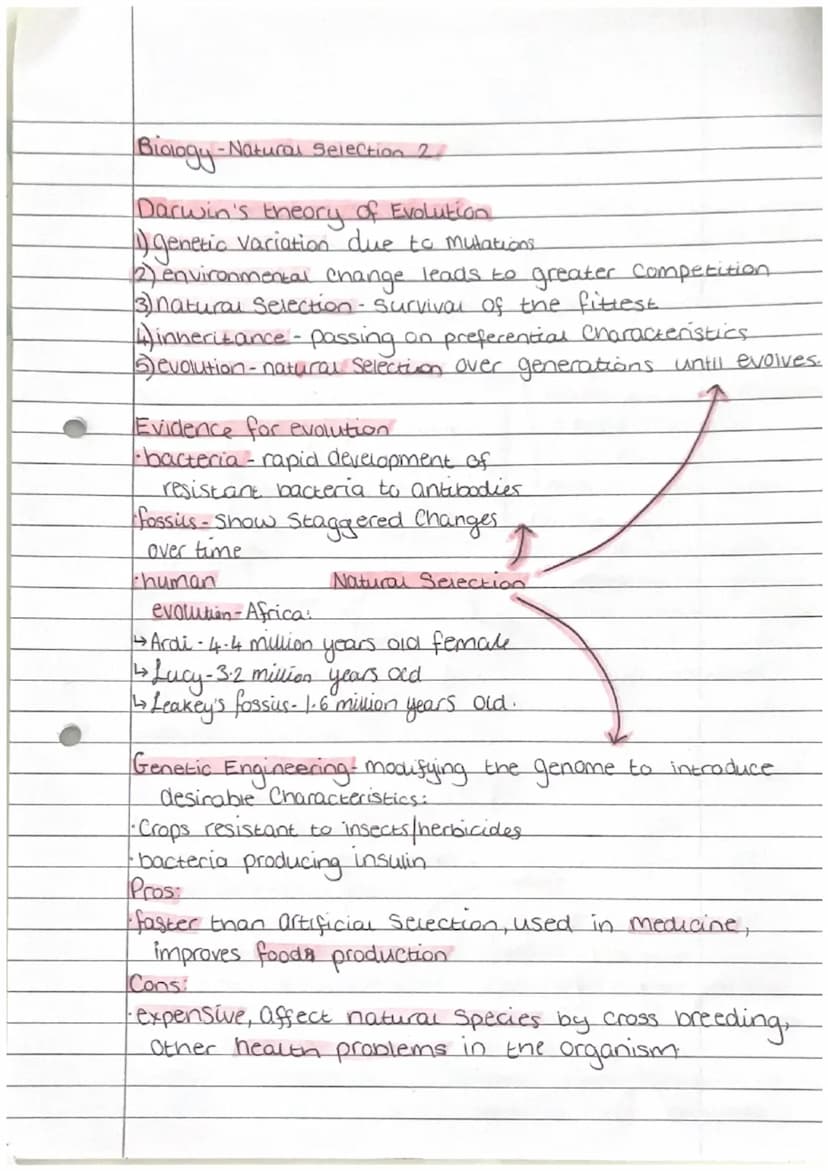 Biology - Natural Selection 2
Darwin's theory of Evolution
1) genetic variation due to mutations
2) environmental change leads to greater competition
3) natural selection - survival of the fittest
4) inheritance - passing on preferential characteristics
5) evolution - natural selection over generations until evolves.
Evidence for evolution
· bacteria - rapid development of
resistant bacteria to antibodies
· fossils - Show Staggered Changes
over time
· human
Natural Selection
evolution - Africa:
↳ Ardi - 4.4 million years old female
↳ Lucy - 3.2 million years old
↳ Leakey's fossils - 1.6 million years old.
Genetic Engineering - modifying the genome to introduce
desirable characteristics:
· Crops resistant to insects/herbicides
· bacteria producing insulin
Pros:
· faster than artificial selection, used in medicine,
improves food production
Cons:
· expensive, affect natural species by cross breeding,
other health problems in the organism